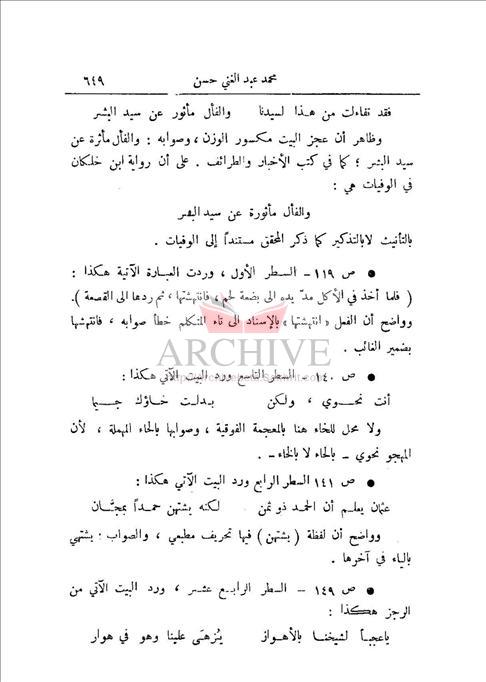 محمد عبد الغني حسن ٦٤٩
فقد تفاءلت من هذا لسيدنا والفأل مأثور عن سيد البشر
وظاهر أن عجز البيت مكسور الوزن ، وصوابه : والفأل مأثرة عن
سيد البشر ؛ كما في كتب الأخبار والطرائف . على أن رواية ابن خلكان
في الوفيات هي :
والفأل مأثورة عن سيد البشر
بالتأنيث لابالتذكير كما ذكر المحقق مستنداً إلى الوفيات .
● ص ١١٩ - السطر الأول ، وردت العبارة الآتية هكذا :
( فلما أخذ في الأكل مدّ يده الى بضعة لحم ، فانتهشتها ، ثم ردها الى القصعة ) .
وواضح أن الفعل « انتهشتها » بالإسناد الى تاء المتكلم خطأ صوابه ، فانتهشها
بضمير الغائب .
ARCHIVE
● ص ١٤٠ - السطر التاسع ورد البيت الآتي هكذا :
أنت نحوي ، ولكن بدلت خاؤك جيما
ولا محل للخاء هنا بالمعجمة الفوقية ، وصوابها بالحاء المهملة ، لأن
المهجو نحوي - بالحاء لا بالخاء - .
● ص ١٤١ السطر الرابع ورد البيت الآتي هكذا :
عثمان يعلم أن الحمد ذو ثمن لكنه يشتهن حمداً بمجّان
وواضح أن لفظة ( يشتهن ) فيها تحريف مطبعي ، والصواب : يشتهي
بالياء في آخرها .
● ص ١٤٩ - السطر الرابع عشر ، ورد البيت الآتي من
الرجز هكذا :
ياعجباً لشيخنا بالأهواز يُزهَى علينا وهو في هوار